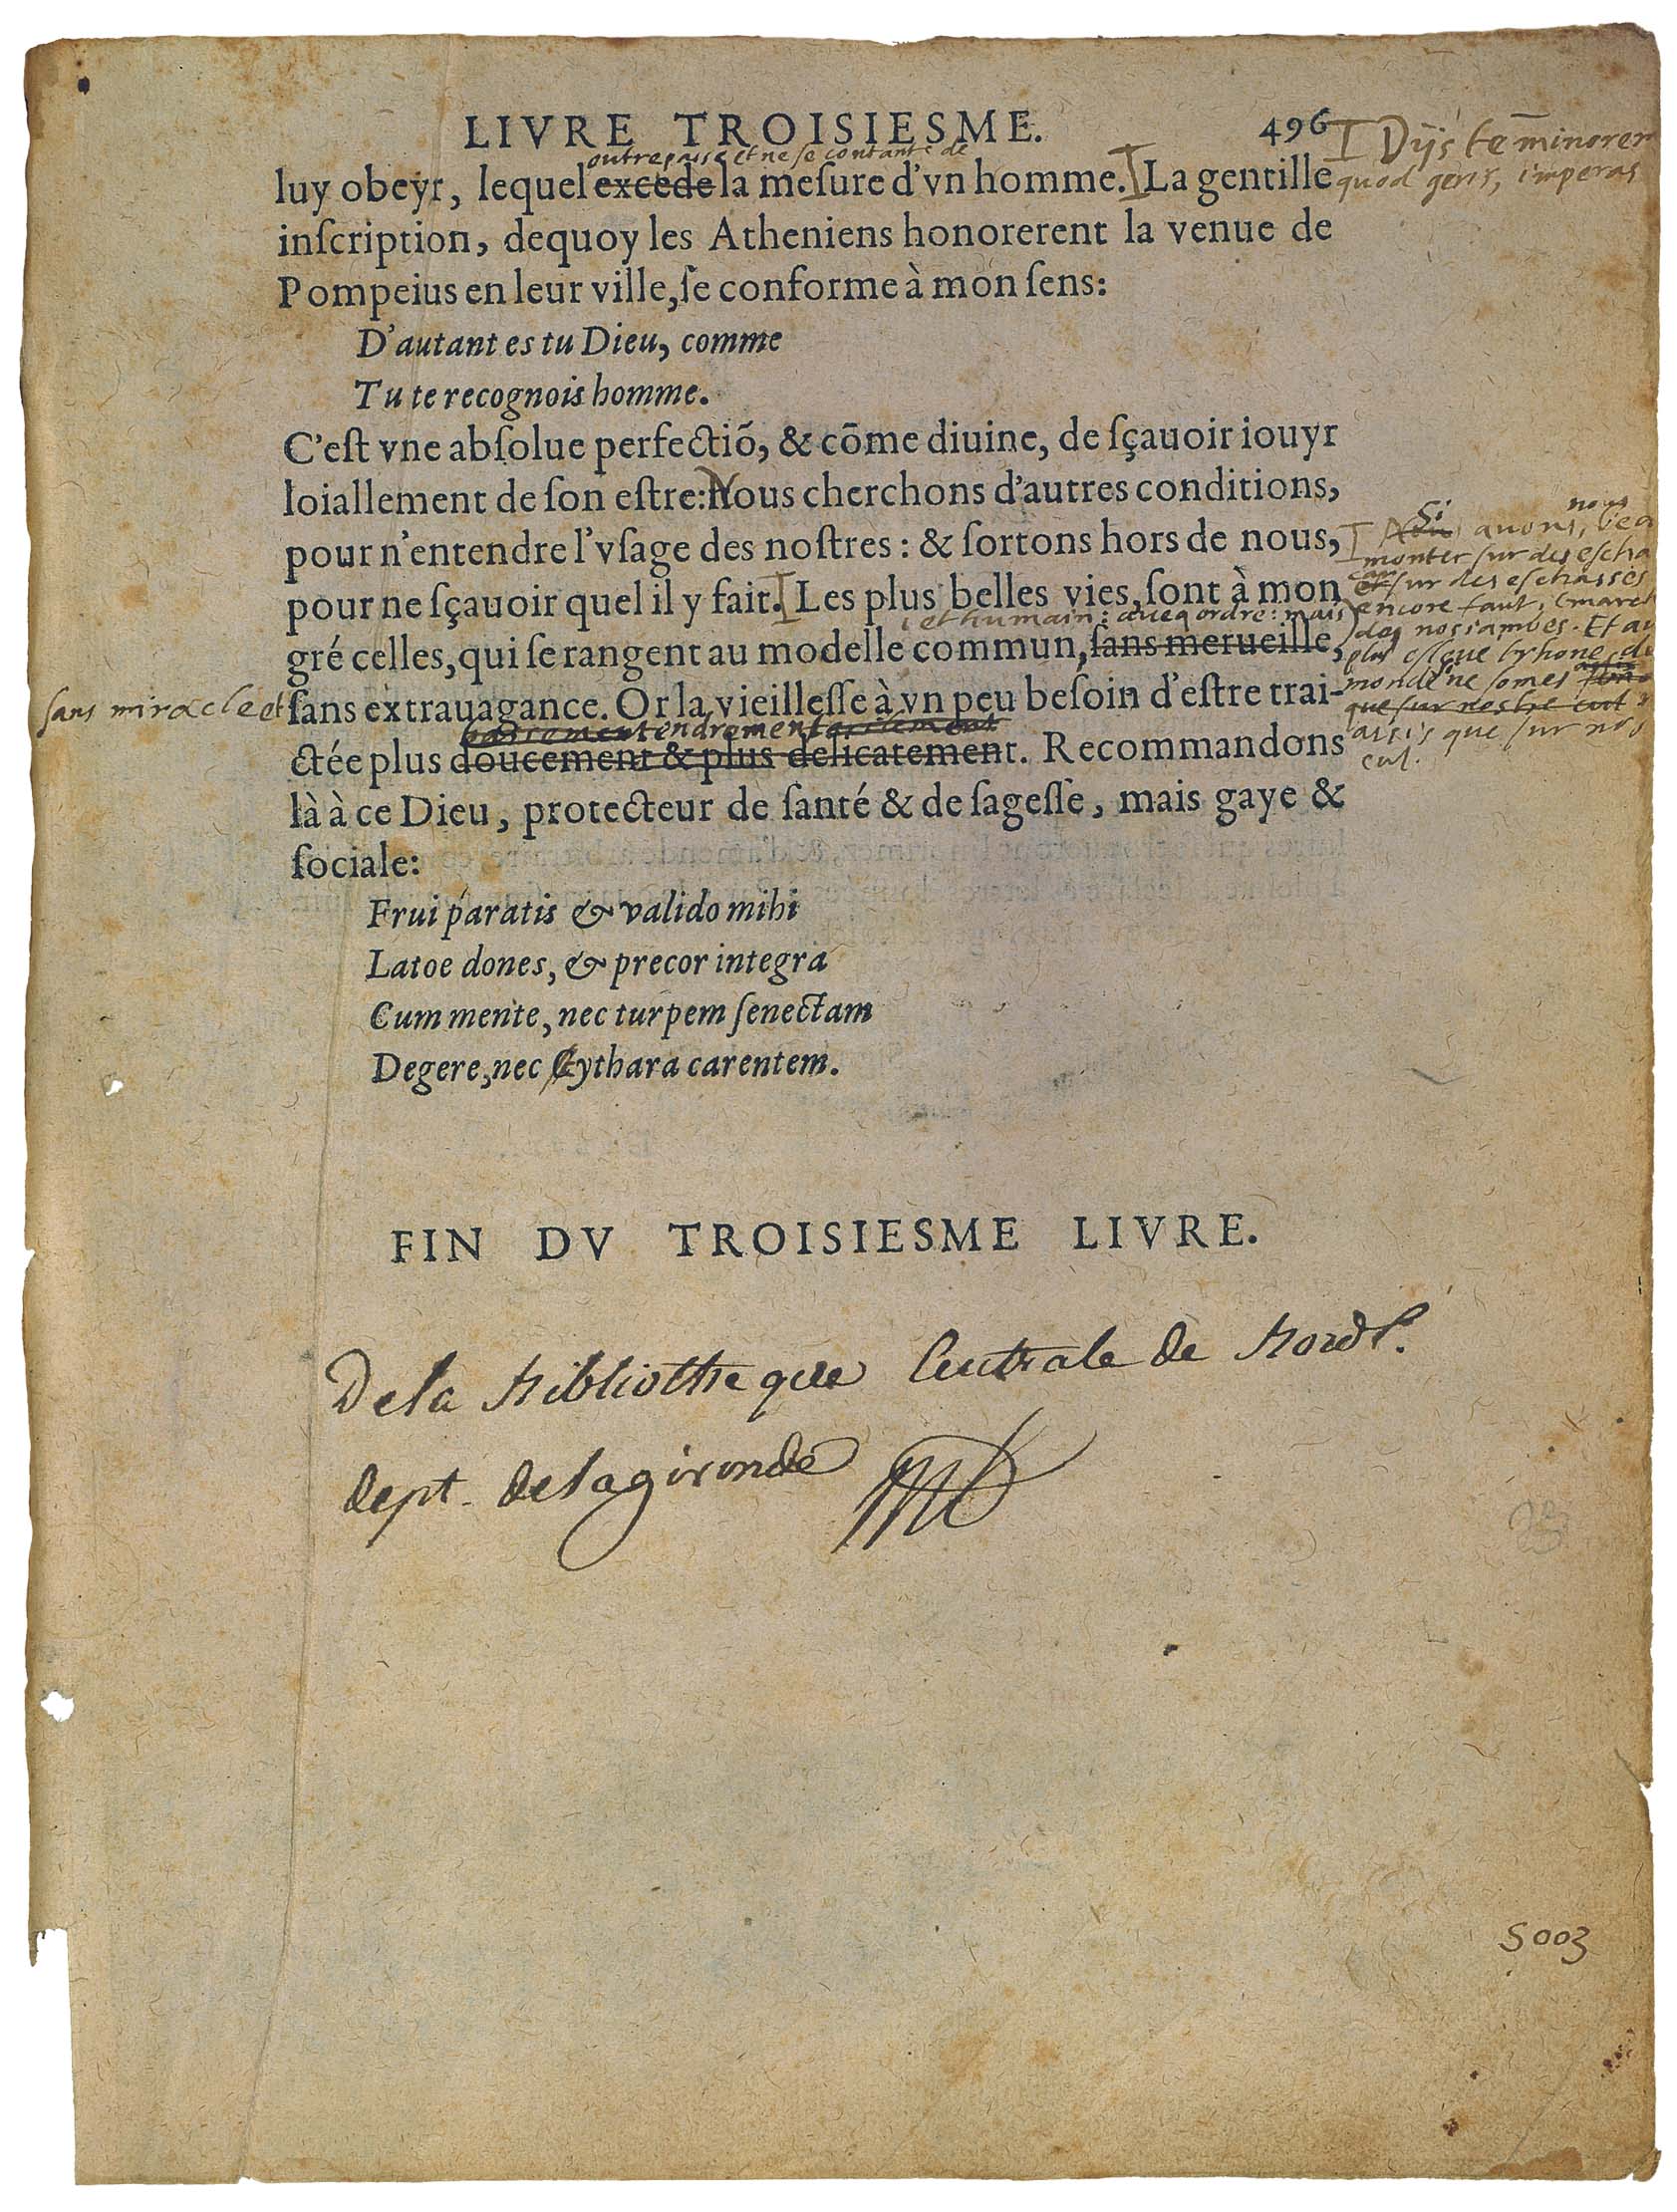 LIVRE TROISIESME. 496
outrepasse et ne se contante de
luy obeyr, lequel excede la meſure d'vn homme. La gentille
I Dÿs te minorem
quod geris, imperas
inſcription, dequoy les Atheniens honorerent la venue de
Pompeius en leur ville, ſe conforme à mon ſens:
D'autant es tu Dieu, comme
Tu te recognois homme.
C'eſt vne abſolue perfectiõ, & cõme diuine, de ſçauoir iouyr
loiallement de ſon eſtre: Nous cherchons d'autres conditions,
pour n'entendre l'vſage des noſtres: & ſortons hors de nous,
pour ne ſçauoir quel il y fait. Les plus belles vies, ſont à mon
et humain: aueq ordre: mais
gré celles, qui ſe rangent au modelle commun, ſans merueille,
sans miracle et
ſans extrauagance. Or la vieilleſſe à vn peu beſoin d'eſtre trai-
tendrement
ctée plus doucement & plus delicatement. Recommandons
Si auons, nous bea
monter sur des escha
car sur des eschasses
encore faut i march
des nos iambes. Et au
plus esleue trhone du
monde ne somes assis
que sur nostre cul
assis que sur nos
cul.
là à ce Dieu, protecteur de ſanté & de ſageſſe, mais gaye &
ſociale:
Frui paratis & valido mihi
Latoe dones, & precor integra
Cum mente, nec turpem ſenectam
Degere, nec Cythara carentem.
FIN DV TROISIESME LIVRE.
De la bibliotheque Centrale de bordx.
dept. de la gironde
S 003